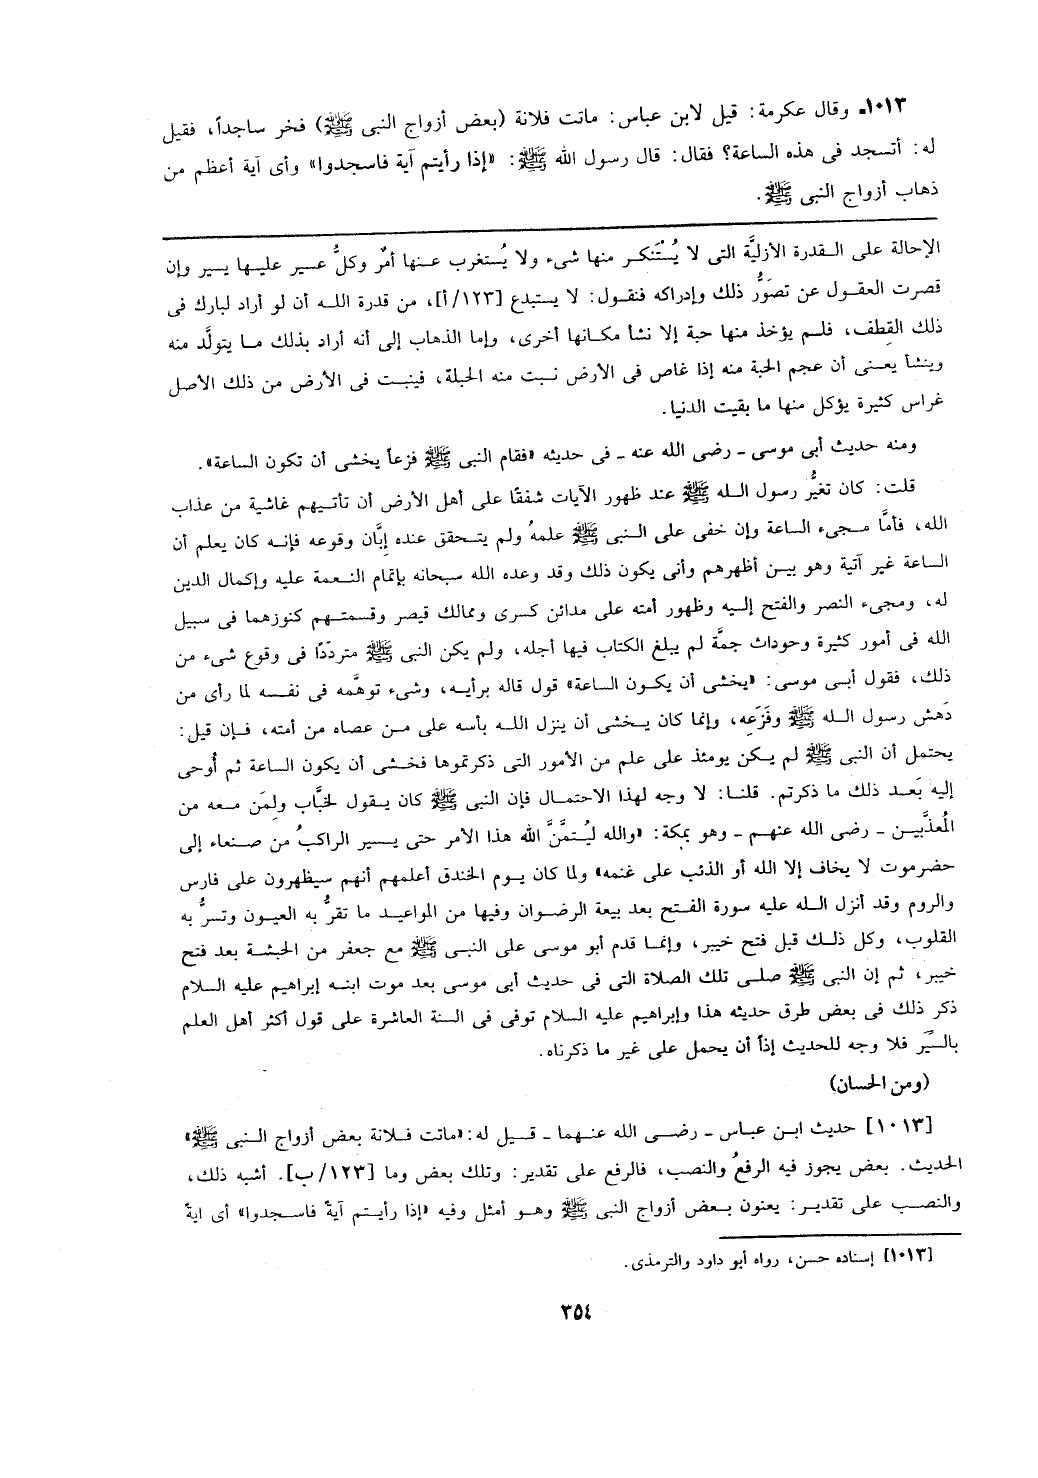 ١٠١٣ـ وقال عكرمة: قيل لابن عباس: ماتت فلانة (بعض أزواج النبى ﷺ) فخر ساجداً، فقيل
له: أتسجد فى هذه الساعة؟ فقال: قال رسول الله ﷺ: «إذا رأيتم آية فاسجدوا» وأى آية أعظم من
ذهاب أزواج النبى ﷺ.
الإحالة على القدرة الأزليَّة التى لا يُسْتَنكر منها شىء ولا يُستغرب عنها أمرٌ وكلُّ عسير عليها يسير وإن
قصرت العقول عن تصوُّر ذلك وإدراكه فنقول: لا يستبدع [١٢٣/أ]، من قدرة الله أن لو أراد لبارك فى
ذلك القِطف، فلم يؤخذ منها حبة إلا نشأ مكانها أخرى، وإما الذهاب إلى أنه أراد بذلك ما يتولَّد منه
وينشأ يعنى أن عجم الحبة منه إذا غاص فى الأرض نبت منه الحبلة، فينبت فى الأرض من ذلك الأصل
غراس كثيرة يؤكل منها ما بقيت الدنيا.
ومنه حديث أبى موسى ـ رضى الله عنه ـ فى حديثه «فقام النبى ﷺ فزعاً يخشى أن تكون الساعة».
قلت: كان تغيُّر رسول الله ﷺ عند ظهور الآيات شفقًا على أهل الأرض أن تأتيهم غاشية من عذاب
الله، فأمَّا مجىء الساعة وإن خفى على النبى ﷺ علمهُ ولم يتحقق عنده إبَّان وقوعه فإنه كان يعلم أن
الساعة غير آتية وهو بين أظهرهم وأنى يكون ذلك وقد وعده الله سبحانه بإتمام النعمة عليه وإكمال الدين
له، ومجىء النصر والفتح إليه وظهور أمته على مدائن كسرى وممالك قيصر وقسمتهم كنوزهما فى سبيل
الله فى أمور كثيرة وحوداث جمَّة لم يبلغ الكتاب فيها أجله، ولم يكن النبى ﷺ متردّدًا فى وقوع شىء من
ذلك، فقول أبى موسى: «يخشى أن يكون الساعة» قول قاله برأيه، وشىء توهَّمه فى نفسه لما رأى من
دَهش رسول الله ﷺ وفَزَعِه، وإنما كان يخشى أن ينزل الله بأسه على من عصاه من أمته، فإن قيل:
يحتمل أن النبى ﷺ لم يكن يومئذ على علم من الأمور التى ذكرتموها فخشى أن يكون الساعة ثم أُوحى
إليه بَعد ذلك ما ذكرتم. قلنا: لا وجه لهذا الاحتمال فإن النبى ﷺ كان يقول لخبَّاب ولِمَن معه من
المُعذَّبين ـ رضى الله عنهم ـ وهو بمكة: «والله ليُتمَّنَّ الله هذا الأمر حتى يسير الراكبُ من صنعاء إلى
حضرموت لا يخاف إلا الله أو الذئب على غنمه» ولما كان يوم الخندق أعلمهم أنهم سيظهرون على فارس
والروم وقد أنزل الله عليه سورة الفتح بعد بيعة الرضوان وفيها من المواعيد ما تقرُّ به العيون وتسرُّ به
القلوب، وكل ذلك قبل فتح خيبر، وإنما قدم أبو موسى على النبى ﷺ مع جعفر من الحبشة بعد فتح
خيبر، ثم إن النبى ﷺ صلى تلك الصلاة التى فى حديث أبى موسى بعد موت ابنه إبراهيم عليه السلام
ذكر ذلك فى بعض طرق حديثه هذا وإبراهيم عليه السلام توفى فى السنة العاشرة على قول أكثر أهل العلم
بالسِّيَر فلا وجه للحديث إذاً أن يحمل على غير ما ذكرناه.
(ومن الحسان)
[١٠١٣] حديث ابن عباس ـ رضى الله عنهما ـ قيل له: «ماتت فلانة بعض أزواج النبى ﷺ»
الحديث. بعض يجوز فيه الرفعُ والنصب، فالرفع على تقدير: وتلك بعض وما [١٢٣/ب]. أشبه ذلك،
والنصب على تقدير: يعنون بعض أزواج النبى ﷺ وهو أمثل وفيه «إذا رأيتم آيةً فاسجدوا» أى اية
[١٠١٣] إسناده حسن، رواه أبو داود والترمذى.
٣٥٤